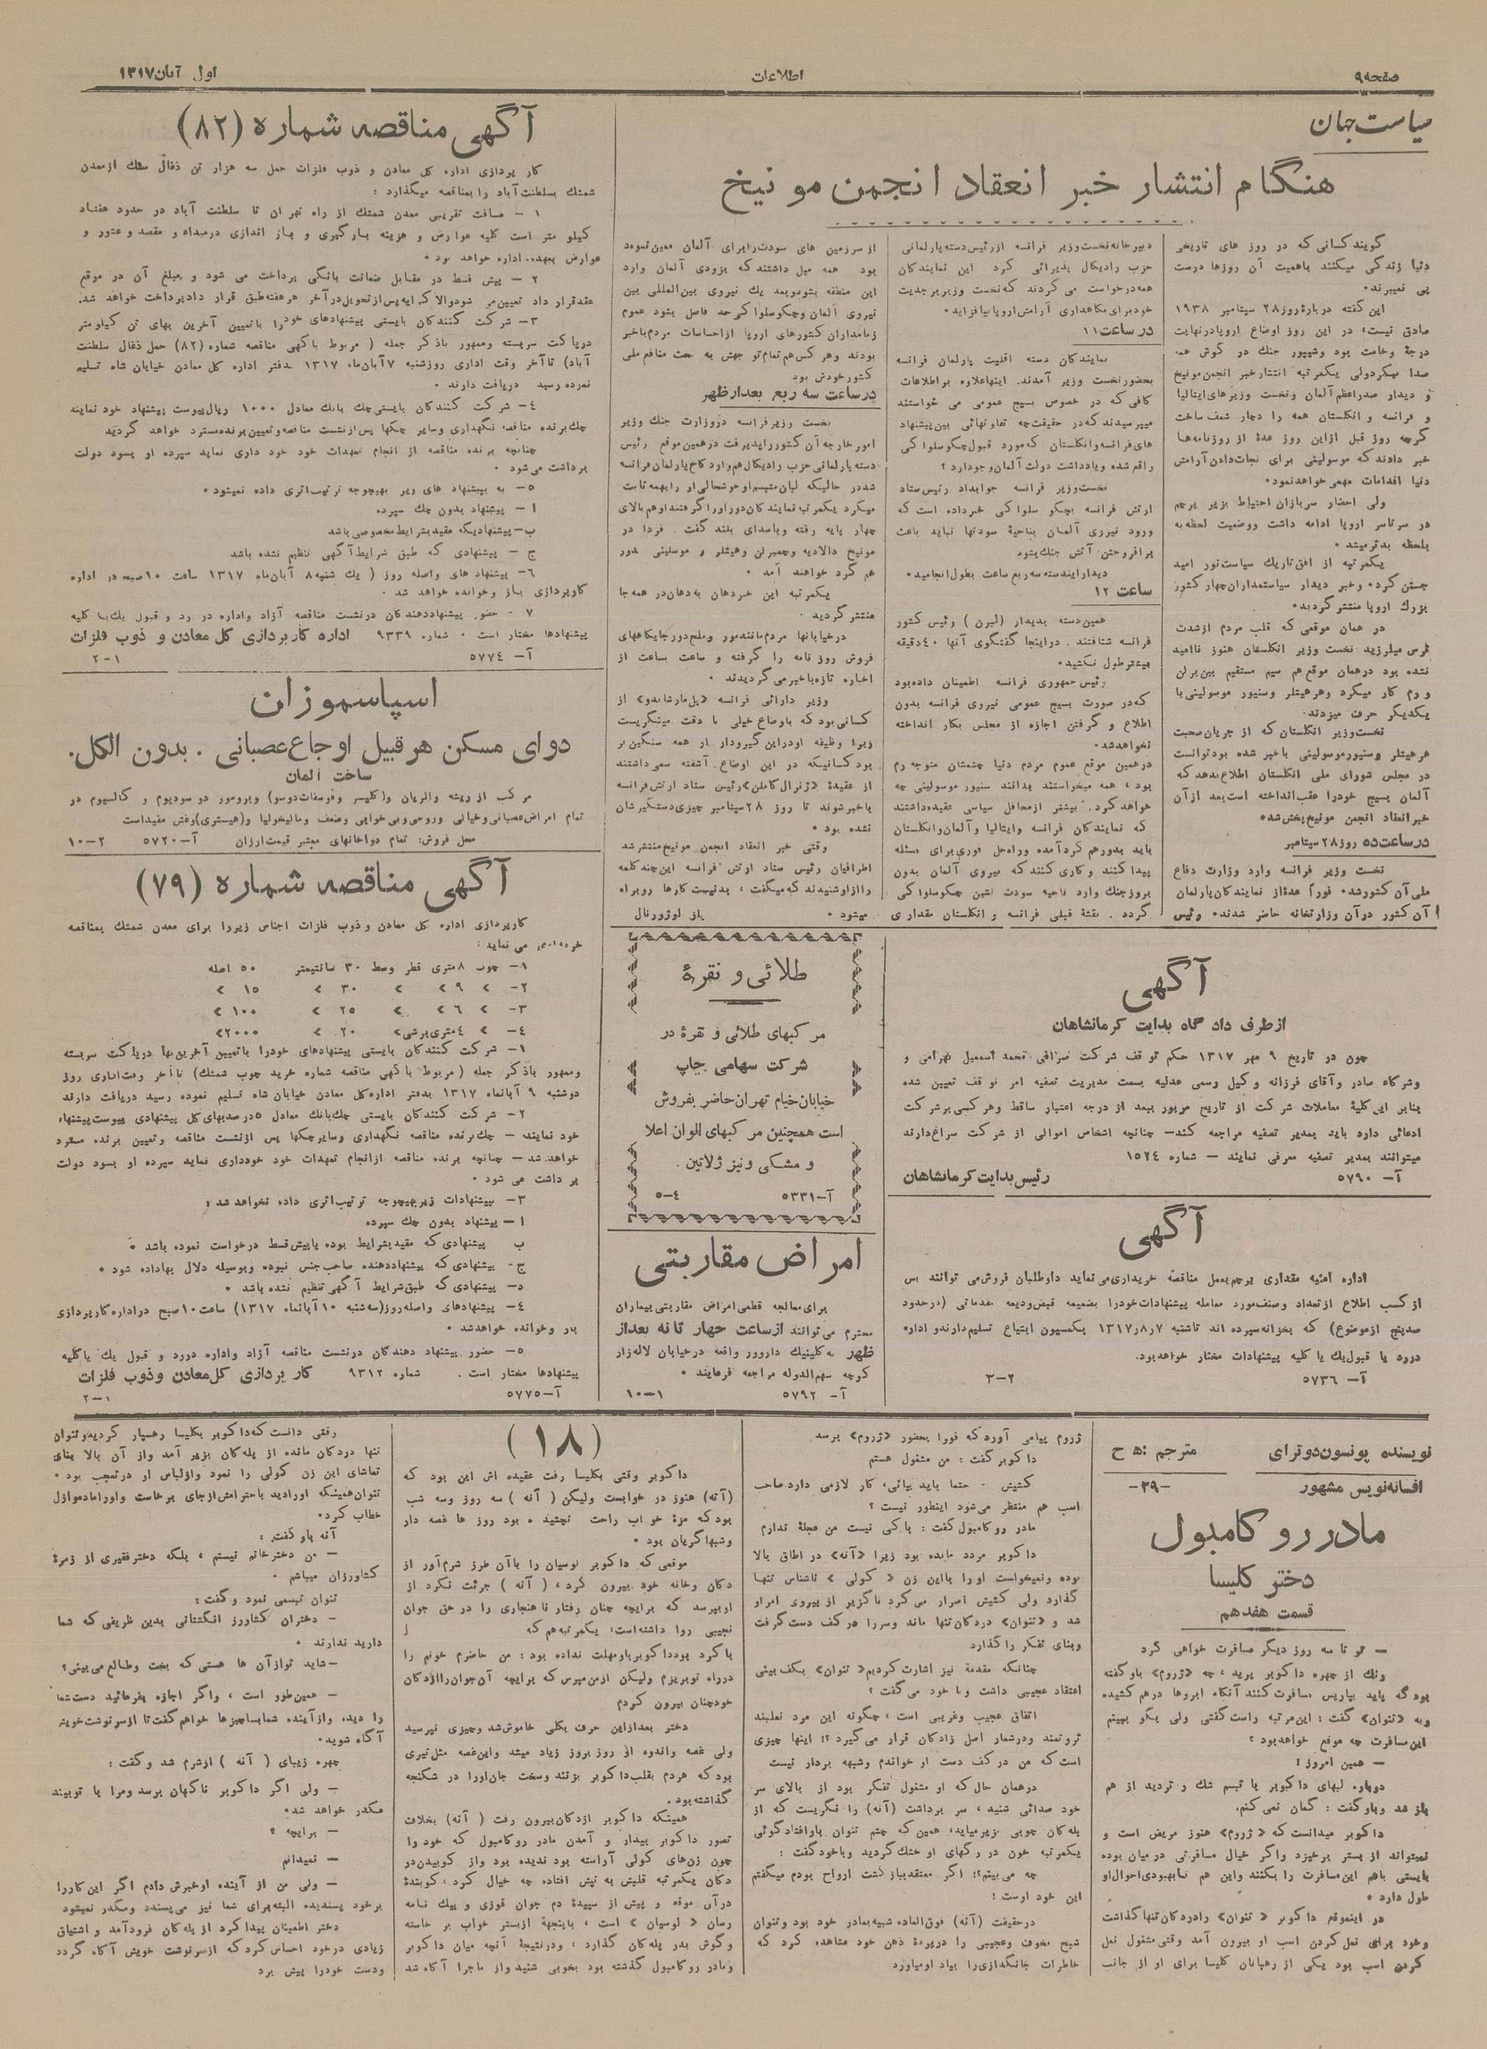 صفحه ۹
اطلاعات
اول آبان ۱۳۱۷
سیاست جهان
هنگام انتشار خبر انعقاد انجمن مونیخ
گویند کسانی که در روز های تاریخی
دنیا زندگی میکنند باهمیت آن روزها درست
پی نمیبرند.
این گفته درباره روز ۲۸ سپتامبر ۱۹۳۸
صادق نیست، در این روز اوضاع اروپا در نهایت
درجهٔ وخامت بود وشیپور جنك در گوش همه
صدا میکرد ولی یکمرتبه انتشار خبر انجمن مونیخ
و دیدار صدراعظم آلمان و نخست وزیر های ایتالیا
و فرانسه و انگلستان همه را دچار شعف ساخت
گرچه روز قبل از این روز عدهٔ از روزنامه‌ها
خبر دادند که موسولینی برای نجات دادن آرامش
دنیا اقدامات مهمی خواهد نمود.
ولی احضار سربازان احتیاط بزیر پرچم
در سرتاسر اروپا ادامه داشت ووضعیت لحظه به
بلحظه بدتر میشد.
یکمرتبه از افق تاریك سیاست نور امید
جستن کرد. وخبر دیدار سیاستمداران چهار کشور
بزرك اروپا منتشر گردید.
در همان موقعی که قلب مردم ازشدت
ترس میلرزید نخست وزیر انگلستان هنوز ناامید
نشده بود درهمان موقع هم سیم مستقیم بین برلن
و رم کار میکرد وهر هیتلر وسنیور موسولینی با
یکدیگر حرف میزدند.
نخست وزیر انگلستان که از جریان صحبت
هر هیتلر وسنیور موسولینی باخبر شده بود توانست
در مجلس شورای ملی انگلستان اطلاع بدهد که
آلمان بسیج خودرا عقب انداخته است بعد از آن
خبر انعقاد انجمن مونیخ پخش شد.
در ساعت ده روز ۲۸ سپتامبر
نخست وزیر فرانسه وارد وزارت دفاع
ملی آن کشور شد. فوراً عده‌ای از نمایندگان پارلمان
آن کشور در آن وزارتخانه حاضر شدند. رئیس
دبیرخانه نخست وزیر فرانسه از رئیس دسته پارلمانی
حزب رادیکال پذیرائی کرد این نمایندگان
همه درخواست می کردند که نخست وزیر بر جدیت
خود برای نگاهداری آرامش اروپا بیافزاید.
در ساعت ۱۱
نمایندگان دسته اقلیت پارلمان فرانسه
بحضور نخست وزیر آمدند. اینها علاوه بر اطلاعات
کافی که در خصوص بسیج عمومی می خواستند
میپرسیدند که در حقیقت چه تفاوتهائی بین پیشنهاد
های فرانسه و انگلستان که مورد قبول چکوسلواکی
واقع شده ویادداشت دولت آلمان وجود دارد؟
نخست وزیر فرانسه جوابداد رئیس ستاد
ارتش فرانسه بچکو سلواکی خبرداده است که
ورود نیروی آلمان بناحیهٔ سودتها نباید باعث
برافروختن آتش جنك بشود
دیدار ایندسته سه ربع ساعت بطول انجامید.
ساعت ۱۲
همین دسته بدیدار (لبرن) رئیس کشور
فرانسه شتافتند. در اینجا گفتگوی آنها ۴۰ دقیقه
بیشتر طول نکشید.
رئیس جمهوری فرانسه اطمینان داده بود
که در صورت بسیج عمومی نیروی فرانسه بدون
اطلاع و گرفتن اجازه از مجلس بکار انداخته
نخواهد شد.
در همین موقع عموم مردم دنیا چشمشان متوجه رم
بود، همه میخواستند بدانند سنیور موسولینی چه
خواهد کرد. بیشتر از محافل سیاسی عقیده داشتند
که نمایندگان فرانسه وایتالیا و آلمان و انگلستان
باید بدورهم گرد آمده و راه حل فوری برای مسئله
پیدا کنند و کاری کنند که نیروی آلمان بدون
بروز جنك وارد ناحیه سودت نشین چکوسلواکی
گردد. نقشهٔ قبلی فرانسه و انگلستان مقداری
از سرزمین های سودت را برای آلمان معین نموده
بود همه میل داشتند که بزودی آلمان وارد
این منطقه بشود وبعد یك نیروی بین المللی بین
نیروی آلمان و چکوسلواکی حد فاصل بشود عموم
زمامداران کشورهای اروپا از احساسات مردم باخبر
بودند و هر کس هم تمام توجهش به حمایت منافع ملی
کشور خودش بود
در ساعت سه ربع بعد از ظهر
نخست وزیر فرانسه در وزارت جنك وزیر
امور خارجه آن کشور را پذیرفت در همین موقع رئیس
دسته پارلمانی حزب رادیکال هم وارد کاخ پارلمان فرانسه
شد در حالیکه لبان متبسم او خوشحالی او را بهمه ثابت
میکرد یکمرتبه نمایندگان دور او را گرفتند او هم بالای
چهار پایه رفته و باصدای بلند گفت. فردا در
مونیخ دالادیه و چمبرلن و هیتلر و موسلینی بدور
هم گرد خواهند آمد.
یکمرتبه این خبر دهان به دهان در همه جا
منتشر گردید.
در خیابانها مردم مانند مور و ملخ دور جایگاههای
فروش روز نامه را گرفته و ساعت بساعت از
اخبار تازه باخبر می گردیدند.
وزیر دارائی فرانسه «پل مارشاندو» از
کسانی بود که باوضاع خیلی با دقت مینگریست
زیرا وظیفه او در این گیرودار از همه سنگین تر
بود کسانیکه در این اوضاع آشفته سعی داشتند
از عقیدهٔ «ژنرال گاملن» رئیس ستاد ارتش فرانسه
باخبر شوند تا روز ۲۸ سپتامبر چیزی دستگیرشان
نشده بود.
وقتی خبر انعقاد انجمن مونیخ منتشر شد
اطرافیان رئیس ستاد ارتش فرانسه این چند کلمه
را از او شنیدند که میگفت، بد نیست کارها رو براه
میشود.
از لوژورنال
آگهی
از طرف داد گاه بدایت کرمانشاهان
چون در تاریخ ۹ مهر ۱۳۱۷ حکم توقف شرکت صرافی محمد اسمعیل تهرانی و
وشرکاء صادر و آقای فرزانه وکیل رسمی عدلیه بسمت مدیریت تصفیه امر توقف تعیین شده
بنابر این کلیهٔ معاملات شرکت از تاریخ مزبور ببعد از درجه اعتبار ساقط وهر کسی بر شرکت
ادعائی دارد باید بمدیر تصفیه مراجعه کند – چنانچه اشخاص اموالی از شرکت سراغ دارند
میتوانند بمدیر تصفیه معرفی نمایند – شماره ۱۵۲۴
آ– ۵۷۹۰ رئیس بدایت کرمانشاهان
آگهی
اداره امنیه مقداری پرچم بعمل مناقصه خریداری می نماید داوطلبان فروش می توانند پس
از کسب اطلاع از تعداد وصنف مورد معامله پیشنهادات خودرا بضمیمه قبض ودیعه مقدماتی (در حدود
صدی پنج از موضوع) که بخزانه سپرده اند تا شنبه ۱۳۱۷٫۸٫۷ بکمسیون ابتیاع تسلیم دارند و اداره
دررد یا قبول یك یا کلیه پیشنهادات مختار خواهد بود.
آ– ۵۷۳۶ ۲–۳
طلائی و نقرهٔ
مرکبهای طلائی و نقرهٔ در
شرکت سهامی چاپ
خیابان خیام تهران حاضر بفروش
است همچنین مرکبهای الوان اعلا
و مشکی و نیز ژلاتین.
آ–۵۳۳۱ ۴–۵
امراض مقاربتی
برای معالجه قطعی امراض مقاربتی بیماران
محترم می توانند از ساعت چهار تا نه بعد از
ظهر به کلینیك داروور واقعه در خیابان لاله زار
کوچه سهم الدوله مراجعه فرمایند.
آ– ۵۷۹۲ ۱–۱۰
آگهی مناقصه شماره (۸۲)
کار پردازی اداره کل معادن و ذوب فلزات حمل سه هزار تن ذغال سنك از معدن
شمشك بسلطنت آباد را بمناقصه میگذارد:
۱ – مسافت تقریبی معدن شمشك از راه تهران تا سلطنت آباد در حدود هفتاد
کیلو متر است کلیه عوارض و هزینه بارگیری و بار اندازی در مبداء و مقصد و عشور و
عوارض بعهده اداره خواهد بود.
۲ – پیش قسط در مقابل ضمانت بانکی پرداخت می شود و مبلغ آن در موقع
عقد قرار داد تعیین می شود والا کرایه پس از تحویل در آخر هر هفته طبق قرار داد پرداخت خواهد شد.
۳– شرکت کنندگان بایستی پیشنهادهای خود را با تعیین آخرین بهای تن کیلومتر
در پاکت سربسته وممهور باذکر جمله (مربوط باگهی مناقصه شماره (۸۲) حمل ذغال سلطنت
آباد) تا آخر وقت اداری روز شنبه ۷ آبان ماه ۱۳۱۷ بدفتر اداره کل معادن خیابان شاه تسلیم
نموده رسید دریافت دارند.
۴– شرکت کنندگان بایستی چك بانك معادل ۱۰۰۰ ریال پیوست پیشنهاد خود نمایند
چك برنده مناقصه نگهداری وسایر چکها پس از نشست مناقصه و تعیین برنده مسترد خواهد گردید
چنانچه برنده مناقصه از انجام تعهدات خود خود داری نماید سپرده او بسود دولت
برداشت می شود.
۵– به پیشنهاد های زیر بهیچوجه ترتیب اثری داده نمیشود.
ا – پیشنهاد بدون چك سپرده
ب– پیشنهادیکه مقید بشرایط مخصوصی باشد
ج – پیشنهادی که طبق شرایط آگهی تنظیم نشده باشد
۶– پیشنهاد های واصله روز (یك شنبه ۸ آبان ماه ۱۳۱۷ ساعت ۱۰ صبح در اداره
کارپردازی باز و خوانده خواهد شد.
۷ – حضور پیشنهاد دهندگان در نشست مناقصه آزاد و اداره در رد و قبول یك یا کلیه
پیشنهادها مختار است. شماره ۹۳۳۹ اداره کار پردازی کل معادن و ذوب فلزات
آ– ۵۷۷۴ ۱–۲
اسپاسموزان
دوای مسکن هر قبیل اوجاع عصبانی. بدون الکل.
ساخت آلمان
مرکب از ریشه والریان و(کلیسر وفرسفات دوسو) و برومور دو سودیوم و کالسیوم در
تمام امراض عصبانی و خیالی و روحی و بی خوابی و ضعف و مالیخولیا و (هیستری) و غش مفید است
محل فروش: تمام دواخانهای معتبر قیمت ارزان آ–۵۷۲۰ ۲–۱۰
آگهی مناقصه شماره (۷۹)
کارپردازی اداره کل معادن و ذوب فلزات اجناس زیر را برای معدن شمشك بمناقصه
خریداری می نماید:
۱– چوب ۸ متری قطر وسط ۳۰ سانتیمتر ۵۰ اصله
۲– » ۹ » » ۳۰ » ۱۵ »
۳– » ۶ » » ۲۵ » ۱۰۰ »
۴– » ۴ متری برشی» ۲۰ » ۲۰۰۰»
۱– شرکت کنندگان بایستی پیشنهادهای خودرا باتعیین آخرین بها در پاکت سربسته
وممهور باذکر جمله (مربوط باگهی مناقصه شماره خرید چوب شمشك) تا آخر وقت اداری روز
دوشنبه ۹ آبانماه ۱۳۱۷ بدفتر اداره کل معادن خیابان شاه تسلیم نموده رسید دریافت دارند
۲– شرکت کنندگان بایستی چك بانك معادل ۵ در صد بهای کل پیشنهادی پیوست پیشنهاد
خود نمایند – چك برنده مناقصه نگهداری وسایر چکها پس از نشست مناقصه و تعیین برنده مسترد
خواهد شد – چنانچه برنده مناقصه از انجام تعهدات خود خودداری نماید سپرده او بسود دولت
بر داشت می شود.
۳– بپیشنهادات زیر بهیچوجه ترتیب اثری داده نخواهد شد:
ا – پیشنهاد بدون چك سپرده
ب پیشنهادی که مقید بشرایط بوده یا پیش قسط درخواست نموده باشد.
ج– پیشنهادی که پیشنهاد دهنده صاحب جنس نبوده و بوسیله دلال بها داده شود.
د– پیشنهادی که طبق شرایط آگهی تنظیم نشده باشد.
۴– پیشنهادهای واصله روز (سه شنبه ۱۰ آبانماه ۱۳۱۷) ساعت ۱۰ صبح در اداره کارپردازی
باز و خوانده خواهد شد.
۵– حضور پیشنهاد دهندگان در نشست مناقصه آزاد و اداره دررد و قبول یك یا کلیه
پیشنهادها مختار است. شماره ۹۳۱۲ کار پردازی کل معادن و ذوب فلزات
آ–۵۷۷۵ ۱–۲
نویسنده پونسون دوترای مترجم: ه ح
افسانه نویس مشهور –۲۹–
مادر روکامبول
دختر کلیسا
قسمت هفدهم
– تو تا سه روز دیگر مسافرت خواهی کرد
ورنك از چهره داکوبر پرید، چه «ژروم» باو گفته
بود که باید بپاریس مسافرت کنند آنگاه ابروها درهم کشیده
وبه «تنوان» گفت: این مرتبه راست گفتی ولی بگو ببینم
این مسافرت چه موقع خواهد بود؟
– همین امروز!
دوباره لبهای داکوبر با تبسم شك و تردید از هم
باز شد وباو گفت: گمان نمی کنم.
داکوبر میدانست که «ژروم» هنوز مریض است و
نمیتواند از بستر برخیزد واگر خیال مسافرتی درمیان بوده
بایستی باهم این مسافرت را بکنند واین هم تا بهبودی احوال او
طول دارد.
در اینموقع داکوبر «تنوان» را در دکان تنها گذاشت
وخود برای نعل کردن اسب او بیرون آمد وقتی مشغول نعل
کردن اسب بود یکی از رهبانان کلیسا برای او از جانب
ژروم پیامی آورد که فورا بحضور «ژروم» برسد
داکوبر گفت: من مشغول هستم
کشیش – حتما باید بیائی، کار لازمی دارد صاحب
اسب هم منتظر می شود اینطور نیست؟
مادر روکامبول گفت: باکی نیست من عجلهٔ ندارم
داکوبر مردد مانده بود زیرا «آنه» در اطاق بالا
بوده ونمیخواست اورا بااین زن «کولی» ناشناس تنها
گذارد ولی کشیش اصرار می کرد ناگزیر از پیروی امر او
شد و «تنوان» در دکان تنها ماند وسررا در کف دست گرفت
وبنای تفکر را گذارد
چنانکه مقدمة نیز اشارت کردیم «تنوان» بکف بینی
اعتقاد عجیبی داشت وبا خود می گفت؟
اتفاق عجیب وغریبی است، چگونه این مرد نعلبند
ثروتمند ودرشمار اصل زادگان قرار می گیرد؟! اینها چیزی
است که من در کف دست او خواندم وشبهه بردار نیست
درهمان حال که او مشغول تفکر بود از بالای سر
خود صدائی شنید، سر برداشت (آنه) را نگریست که از
پله کان چوبی بزیر میاید، همین که چشم تنوان باو افتاد گوئی
یکمرتبه خون در رگهای او خشك گردید وباخود گفت:
چه می بینم؟! اگر معتقد بباز گشت ارواح بودم میگفتم
این خود اوست!
در حقیقت (آنه) فوق العاده شبیه بمادر خود بود وتنوان
شبح مخوف وعجیبی را در پردهٔ ذهن خود مشاهده کرد که
خاطرات جانگدازی را بیاد او میاورد
(۱۸)
داکوبر وقتی بکلیسا رفت عقیده اش این بود که
(آنه) هنوز در خوابست ولیکن (آنه) سه روز وسه شب
بود که مزهٔ خواب راحت نچشیده بود روز ها غصه دار
وشبها گریان بود.
موقعی که داکوبر لوسیان را باآن طرز شرم آور از
دکان وخانه خود بیرون کرد، (آنه) جرئت نکرد از
او بپرسد که برایچه چنان رفتار ناهنجاری را در حق جوان
نجیبی روا داشته است، یکمرتبه هم که
یاد کرد بود داکوبر باو مهلت نداده بود: من حاضرم خونم را
در راه تو بریزم ولیکن از من مپرس که برایچه آن جوان را از دکان
خودمان بیرون کردم
دختر بعد از این حرف بکلی خاموش شد و چیزی نپرسید
ولی غصه و اندوه او روز بروز زیاد میشد واین غصه مثل تیری
بود که هردم بقلب داکوبر بزنند وسخت جان اورا در شکنجه
گذاشته بود.
همینکه داکوبر از دکان بیرون رفت (آنه) بخلاف
تصور داکوبر بیدار و آمدن مادر روکامبول که خودرا
چون زنهای کولی آراسته بود ندیده بود واز کوبیدن در
دکان یکمرتبه قلبش به تپش افتاده چه خیال کرد، کوبندهٔ
در آن موقع و پیش از سپیدهٔ دم جوان قوزی و پیك نامه
رسان «لوسیان» است، باینجهة از بستر خواب بر خاسته
وگوش بدر پله کان گذارد، ودر نتیجهٔ آنچه میان داکوبر
ومادر روکامبول گذشته بود بخوبی شنید واز ماجرا آگاه شد
وقتی دانست که داکوبر بکلیسا رهسپار گردید و تنوان
تنها در دکان مانده از پله کان بزیر آمد واز آن بالا بنای
تماشای این زن کولی را نمود و از لباس او در تعجب بود.
تنوان همینکه اورا دید با احترامش از جای برخاست واورا مادموازل
خطاب کرد.
آنه باو گفت:
– من دختر خانم نیستم، بلکه دختر فقیری از زمرهٔ
کشاورزان میباشم.
تنوان تبسمی نمود و گفت:
– دختران کشاورز انگشتانی بدین ظریفی که شما
دارید ندارند.
– شاید تو از آن ها هستی که بخت وطالع می بینی؟
– همین طور است، و اگر اجازه بفرمائید دست شما
را دیده، و از آینده شما بسا چیزها خواهم گفت تا از سرنوشت خویتر
آگاه شوید.
چهره زیبای (آنه) از شرم شد و گفت:
– ولی اگر داکوبر ناگهان برسد ومرا با تو بیند
مکدر خواهد شد.
– برایچه؟
– نمیدانم
– ولی من از آینده او خبرش دادم اگر این کار را
بر خود پسندیده البته برای شما نیز می پسندد ومکدر نمیشود
دختر اطمینان پیدا کرد از پله کان فرود آمد و اشتیاق
زیادی در خود احساس کرد که از سرنوشت خویش آگاه گردد
ودست خودرا پیش برد